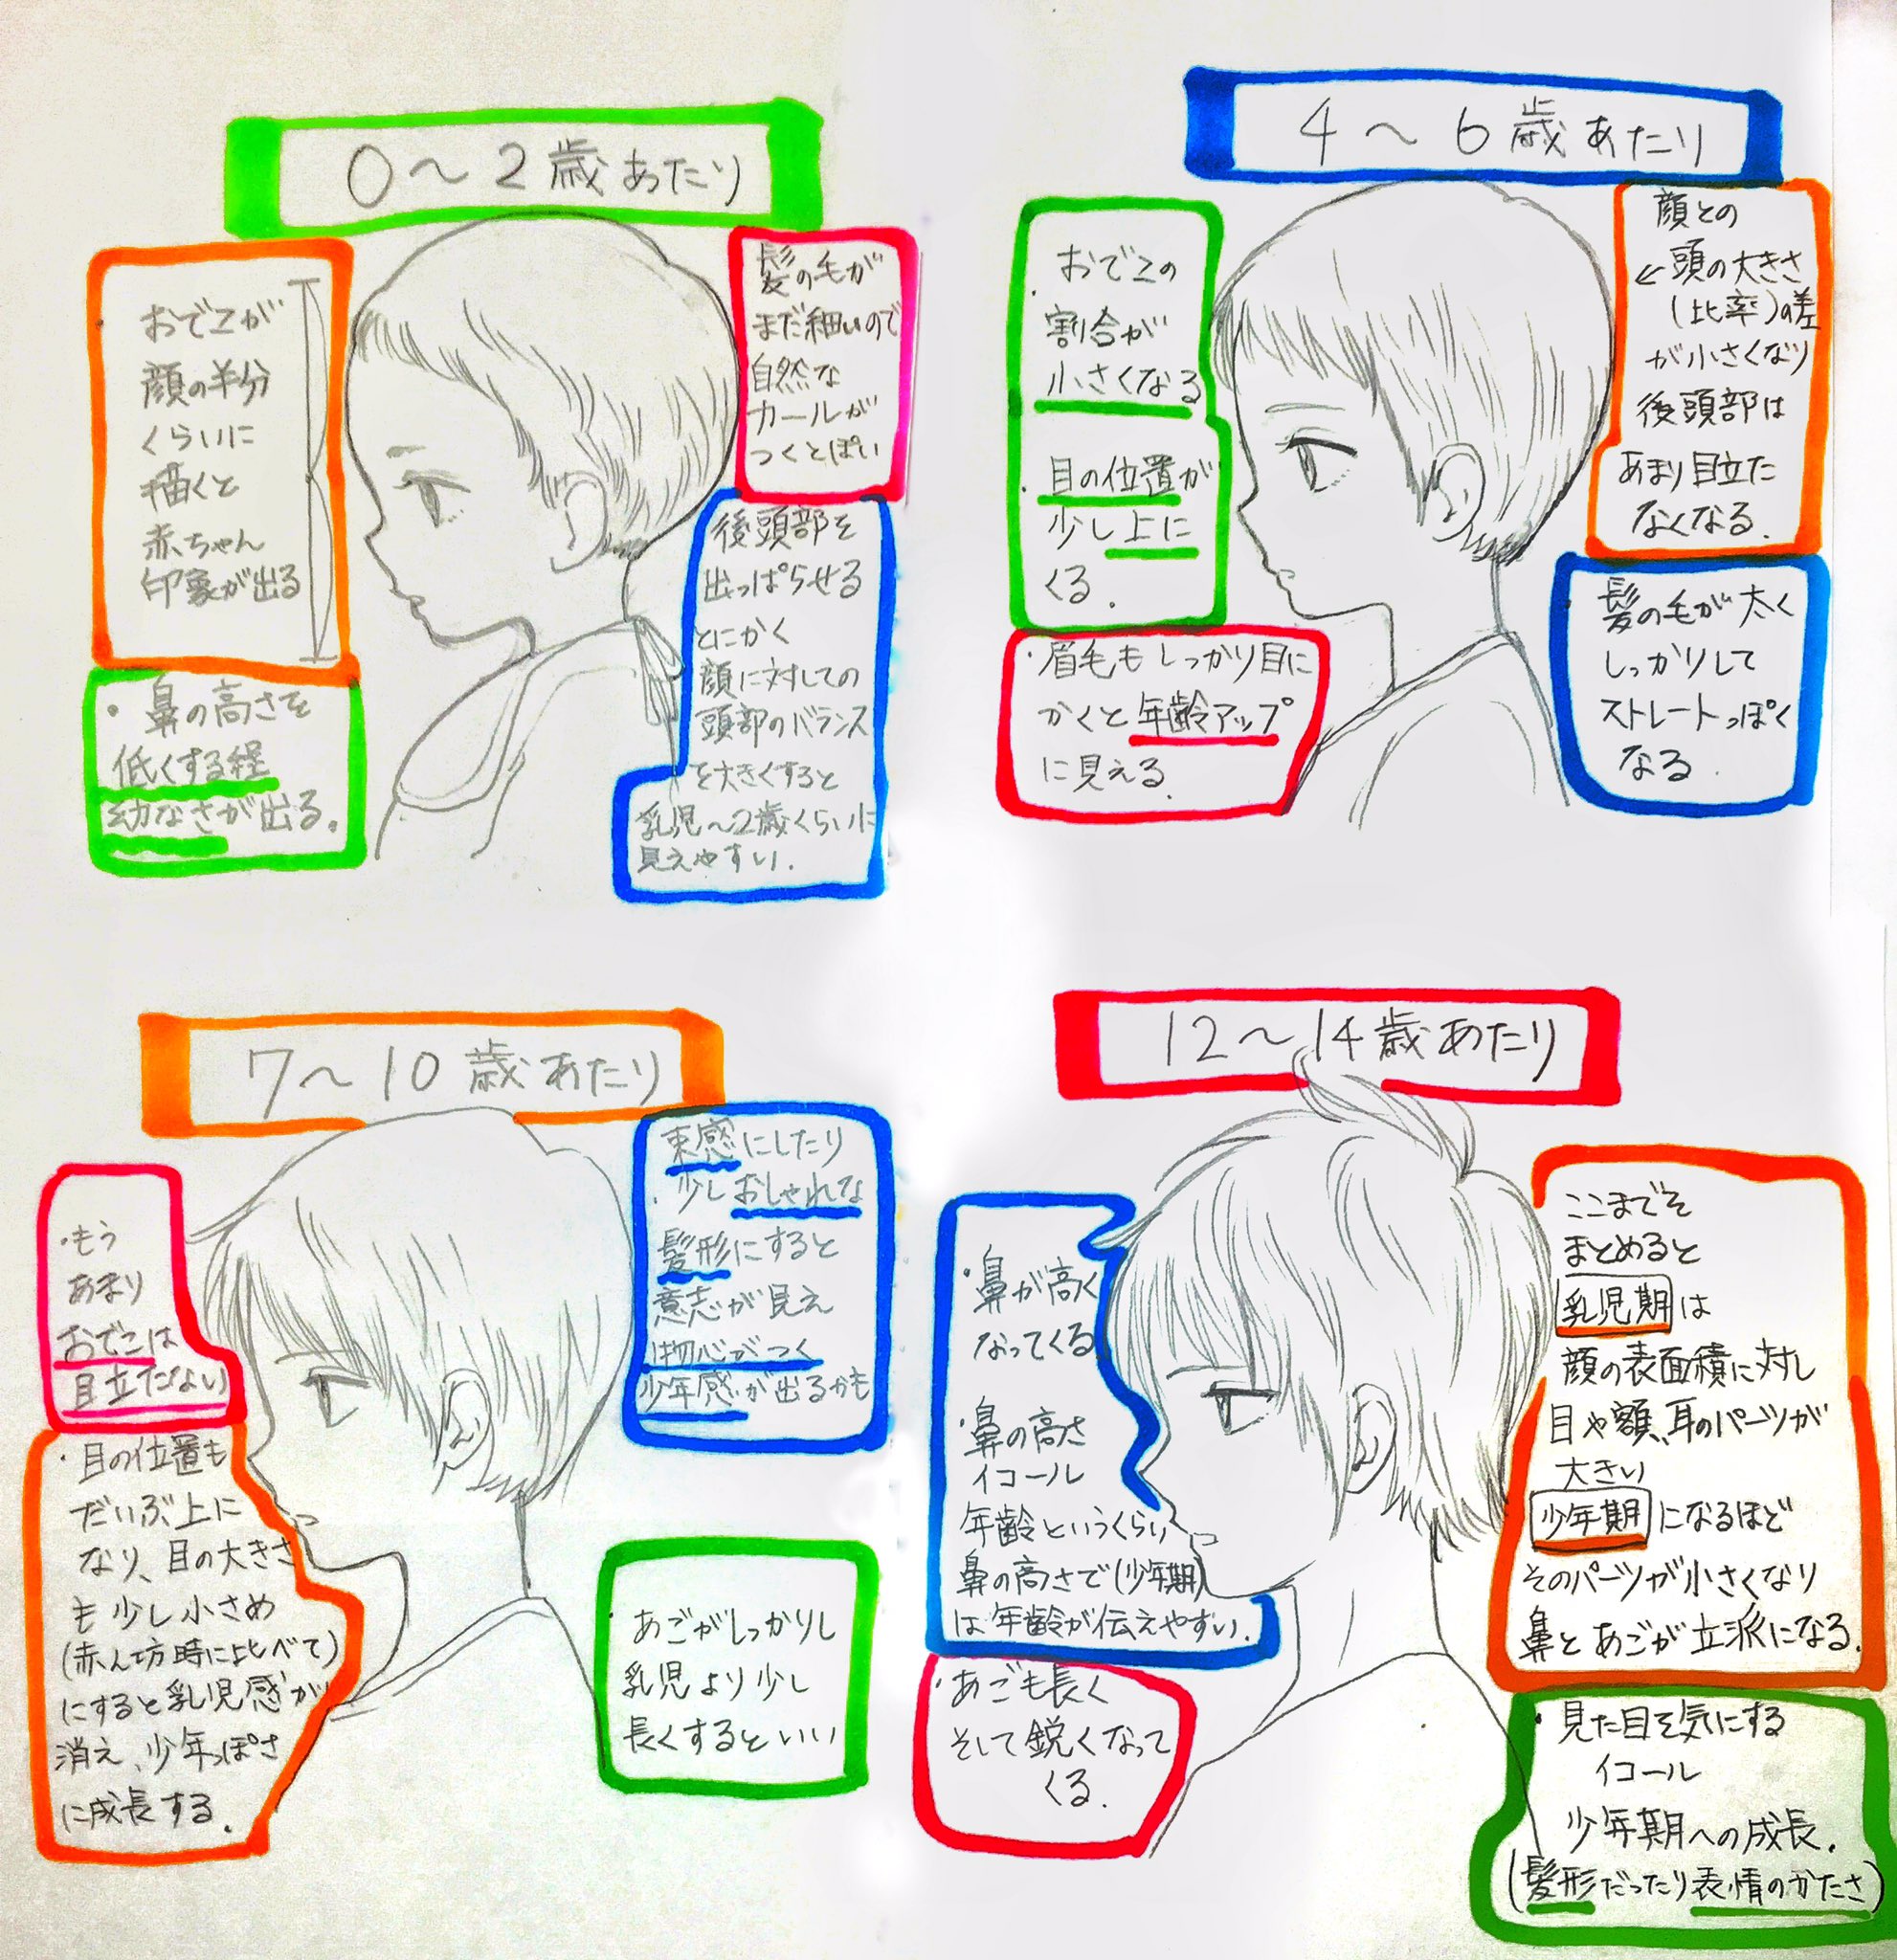 0〜2歳あたり
・おでこが
顔の半分
くらいに
描くと
赤ちゃん
印象が出る
・鼻の高さを
低くする程
幼なさが出る。
髪の毛が
まだ細いので
自然な
カールが
つくとぽい
後頭部を
出っぱらせる
とにかく
顔に対しての
頭部のバランス
を大きくすると
乳児〜2歳くらいに
見えやすい.
4〜6歳あたり
・おでこの
割合が
小さくなる
・目の位置が
少し上に
くる.
・眉毛もしっかり目に
かくと年齢アップ
に見える.
顔との
←頭の大きさ
(比率)の差
が小さくなり
後頭部は
あまり目立た
なくなる.
・髪の毛が太く
しっかりして
ストレートっぽく
なる.
7〜10歳あたり
・もう
あまり
おでこは
目立たない
・目の位置も
だいぶ上に
なり、目の大きさ
も少し小さめ
(赤ん坊時に比べて)
にすると乳児感が
消え、少年っぽさ
に成長する.
束感にしたり
・少しおしゃれな
髪形にすると
意志が見え
物心がつく
少年感が出るかも
・あごがしっかりし
乳児より少し
長くするといい
12〜14歳あたり
・鼻が高く
なってくる.
・鼻の高さ
イコール
年齢というくらい
鼻の高さで(少年期)
は年齢が伝えやすい.
・あごも長く
そして鋭くなって
くる.
ここまでを
まとめると
乳児期は
顔の表面積に対し
目や額、耳のパーツが
大きい
少年期になるほど
そのパーツが小さくなり
鼻とあごが立派になる.
・見た目を気にする
イコール
少年期への成長.
(髪形だったり表情のかたさ)